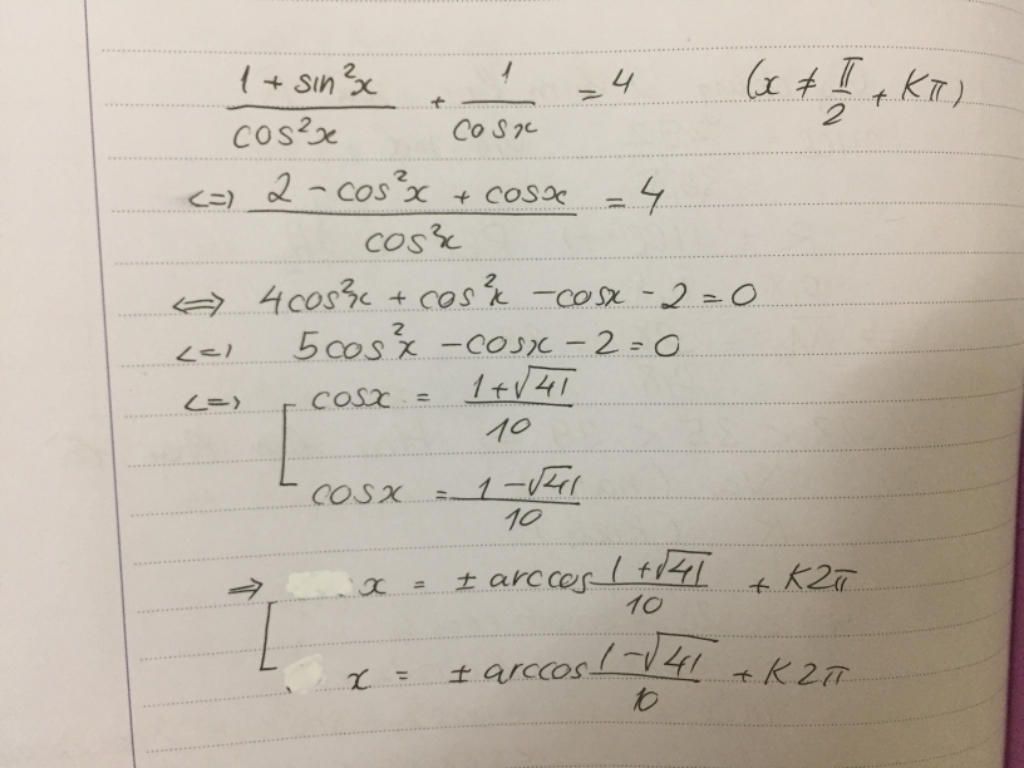 (1 + sin²x)/(cos²x) + 1/(cosx) = 4 (x ≠ π/2 + Kπ)
<=> (2 - cos²x + cosx)/(cos²x) = 4
<=> 4cos²x + cos²x - cosx - 2 = 0
<=> 5cos²x - cosx - 2 = 0
<=> [ cosx = (1+√41)/10
cosx = (1-√41)/10
=> [ x = ± arccos (1+√41)/10 + K2π
x = ± arccos (1-√41)/10 + K2π